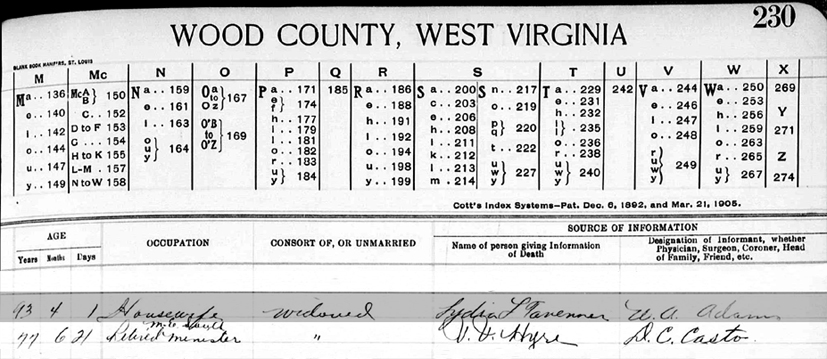 230
WOOD COUNTY, WEST VIRGINIA
BLANK BOOK MAN'F'RS, ST. LOUIS
M Mc N O P Q R S T U V W X
Ma.. 136 McA B } 150 Na.. 159 Oa to Oz } 167 Pa.. 171 185 Ra.. 186 Sa.. 200 Sn.. 217 Ta.. 229 242 Va.. 244 Wa.. 250 269
e.. 140 C... 152 e.. 161 e f } 174 e.. 188 c.. 203 o.. 219 e.. 231 e.. 246 e.. 253
i.. 142 D to F 153 i.. 163 O'B to O'Z } 169 h.. 177 h.. 191 e.. 206 p q } 220 h.. 232 i.. 247 h.. 256 Y
o.. 144 G.... 154 o u y } 164 i.. 179 i.. 192 h.. 208 t... 222 i l } 235 o.. 248 i.. 259 271
u.. 147 H to K 155 l.. 181 o.. 194 i.. 211 u w y } 227 o.. 236 r u y } 249 o.. 263 Z
y.. 149 L-M.. 157 o.. 182 u.. 198 k.. 212 r.. 238 r.. 265 274
N to W 158 r.. 183 y.. 199 l.. 213 u w y } 240 u y } 267
u y } 184 m.. 214
Cott's Index Systems—Pat. Dec. 6, 1892, and Mar. 21, 1905.
AGE OCCUPATION CONSORT OF, OR UNMARRIED SOURCE OF INFORMATION
Years Months Days Name of person giving Information of Death Designation of Informant, whether Physician, Surgeon, Coroner, Head of Family, Friend, etc.
93 4 1 Housewife widowed Lydia L Tavenner U. A. Adams
M. E. South
77 6 21 Retired Minister " V. V. Hyre D. C. Casto